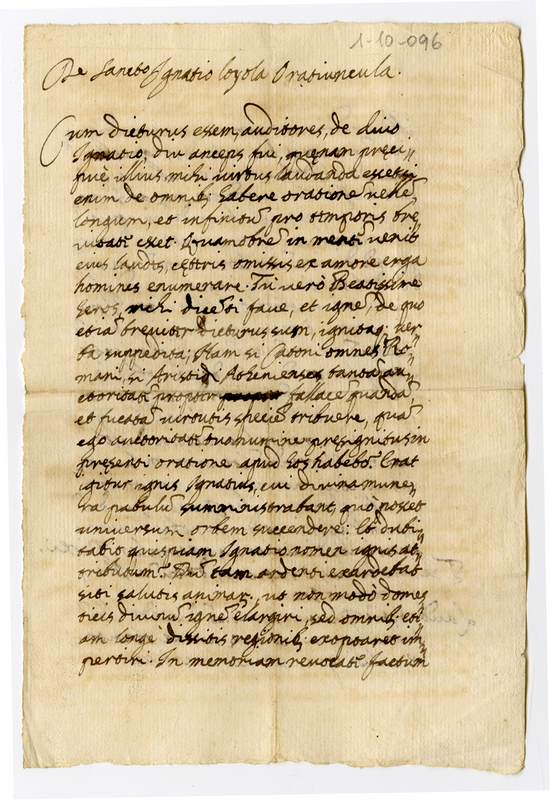 1-10-096
De Sancto Ignatio Loyola Oratiuncula.
Cum dicturus essem, auditores, de divo
Ignatio, diu anceps fui, quęnam pręci„
puè illius mihi virtus laudanda esset;
enim de omnib; habere orationē
longum, et infinitū pro temporis bre„
vitate esset. Quamobrē in mentē venit
eius laudes, cęteris omissis ex amore erga
homines enumerare. Tu verò Beatissime
heros, mihi dicēti fave, et igne, de quo
etiā breviter dicturus sum, ignitaq; ver„
ba suppedita; Nam si Catoni omnes Ro„
mani, si Aristidi Athenienses tantā au„
ctoritatē propter fallacē quandā,
et fucatā virtutis speciē tribuere, quā
ego auctoritatē tuo numine in
pręsenti oratione apud hos habebo? Erat
igitur ignis Ignatius, cui divina mune„
ra pabulū sumministrabant, quò posset
universum orbem succendere: Et dubi„
tabit quispiam Ignatio nomen ignis at„
tributum? tam ardenti exardebat
siti salutis animar. ut non modò domes„
ticis divinū ignē elargiri, sed omnib; eti„
am longe dissitis regionib; exoptaret im„
pertiri. In memoriam revocate factum